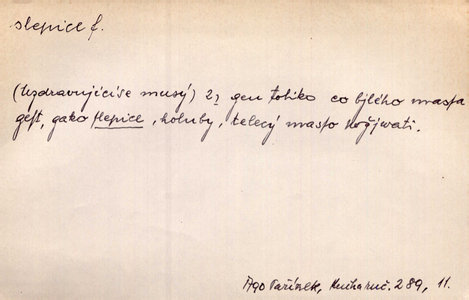 slepice f.
(Uzdravujícíse musý) 2) gen toliko co bjlého masa
gest, gako slepice, holuby, telecý maso vožjwati.
Kuchařuč. 289, 11.